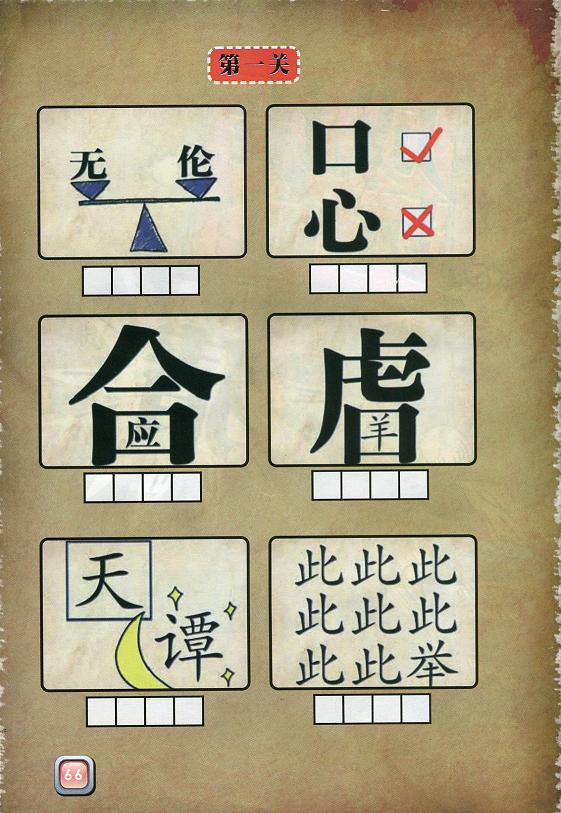 第一关
无 伦
口
心
合
应
虎口
羊
天
谭
此此此
此此此
此此举
66